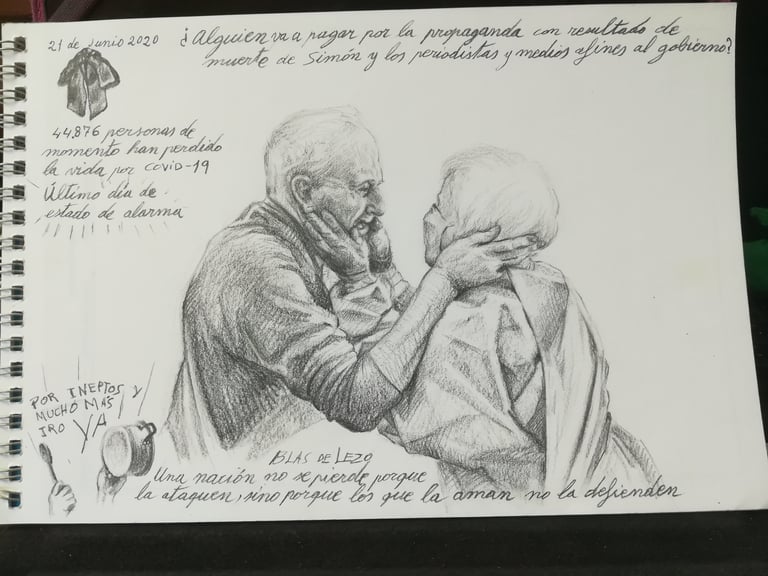 21 de Junio 2020
¿Alguien va a pagar por la propaganda con resultado de
muerte de Simón y los periodistas y medios afines al gobierno?
44.876 personas de
momento han perdido
la vida por COVID-19
Último día de
estado de alarma
POR INEPTOS Y
MUCHO MÁS
IRO YA
BLAS DE LEZO
Una nación no se pierde porque
la ataquen, sino porque los que la aman no la defienden